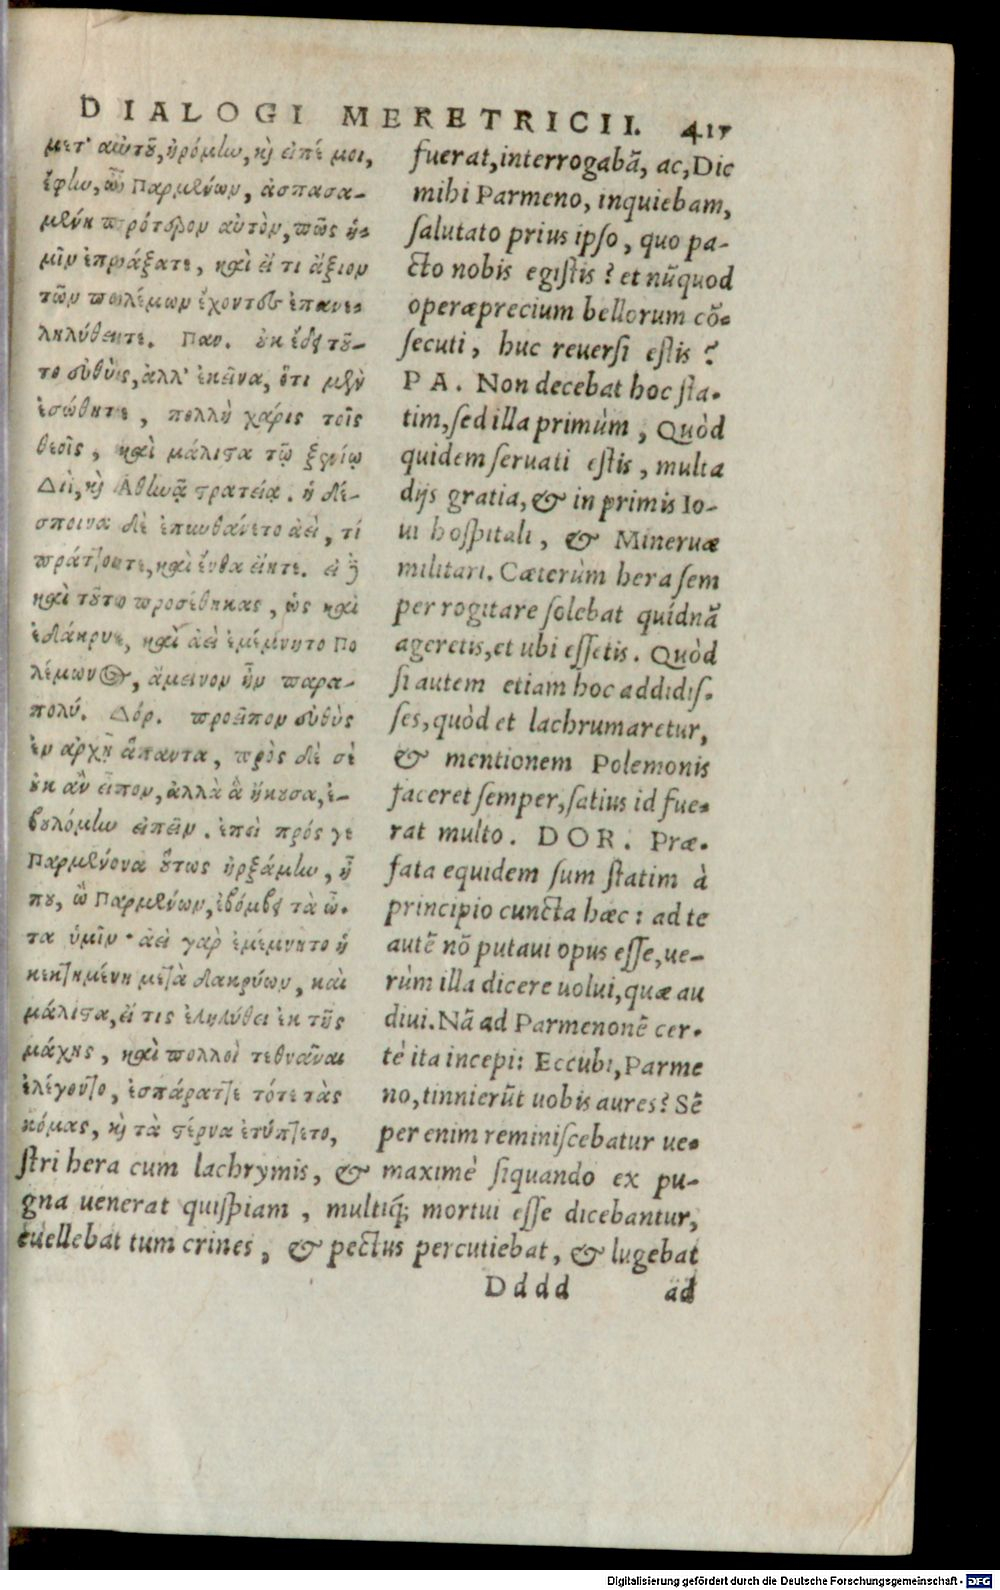 DIALOGI MERETRICII. 417
μετ' αὐτοῦ, ἠρόμην, καὶ εἰπέ μοι,
ἔφην, ὦ Παρμένων, ἀσπασα-
μένη πρότερον αὐτὸν, πῶς ἡ-
μῖν ἐπράξατε, καὶ εἴ τι ἄξιον
τῶν πολέμων ἔχοντες ἐπανε-
ληλύθατε. Παν. οὐκ ἔδει τοῦ-
το εὐθὺς, ἀλλ' ἐκεῖνα, ὅτι μὲν
ἐσώθητε, πολλὴ χάρις τοῖς
θεοῖς, καὶ μάλιστα τῷ ξενίῳ
Διὶ, καὶ Ἀθηνᾷ στρατείᾳ. ἡ δέ-
σποινα δὲ ἐπυνθάνετο ἀεὶ, τί
πράττοιτε, καὶ ἔνθα εἴητε. εἰ δὲ
καὶ τοῦτο προσέθηκας, ὡς καὶ
ἐδάκρυε, καὶ ἀεὶ ἐμέμνητο Πο
λέμωνος, ἄμεινον ἦν παρα-
πολύ. Δόρ. προεῖπον εὐθὺς
ἐν ἀρχῇ ἅπαντα, πρὸς δὲ σὲ
οὐκ ἂν εἶπον, ἀλλὰ ἃ ἤκουσα, ἐ-
βουλόμην εἰπεῖν. ἐπεὶ πρός γε
Παρμένονα οὕτως ἠρξάμην, ἦ
που, ὦ Παρμένων, ἐβόμβει τὰ ὦ-
τα ὑμῖν· ἀεὶ γὰρ ἐμέμνητο ἡ
κεκτημένη μετὰ δακρύων, καὶ
μάλιστα, εἴ τις ἐληλύθει ἐκ τῆς
μάχης, καὶ πολλοὶ τεθνᾶναι
ἐλέγοντο, ἐσπάραττε τότε τὰς
κόμας, καὶ τὰ στέρνα ἐτύπτετο,
fuerat, interrogabā, ac, Dic
mihi Parmeno, inquiebam,
salutato prius ipso, quo pa-
cto nobis egistis? et nūquod
operæprecium bellorum cō-
secuti, huc reuersi estis?
PA. Non decebat hoc sta-
tim, sed illa primùm, Quòd
quidem seruati estis, multa
dijs gratia, & in primis Io-
ui hospitali, & Mineruæ
militari. Cæterùm hera sem
per rogitare solebat quidnā
ageretis, et ubi essetis. Quòd
si autem etiam hoc addidis-
ses, quòd et lachrumaretur,
& mentionem Polemonis
faceret semper, satius id fue-
rat multo. DOR. Præ-
fata equidem sum statim à
principio cuncta hæc: ad te
autē nō putaui opus esse, ue-
rùm illa dicere uolui, quæ au
diui. Nā ad Parmenonē cer-
tè ita incepi: Eccubi, Parme
no, tinnierūt uobis aures? Sē
per enim reminiscebatur ue-
stri hera cum lachrymis, & maximè siquando ex pu-
gna uenerat quispiam, multiq; mortui esse dicebantur,
euellebat tum crines, & pectus percutiebat, & lugebat
Dddd ad
Digitalisierung gefördert durch die Deutsche Forschungsgemeinschaft - DFG